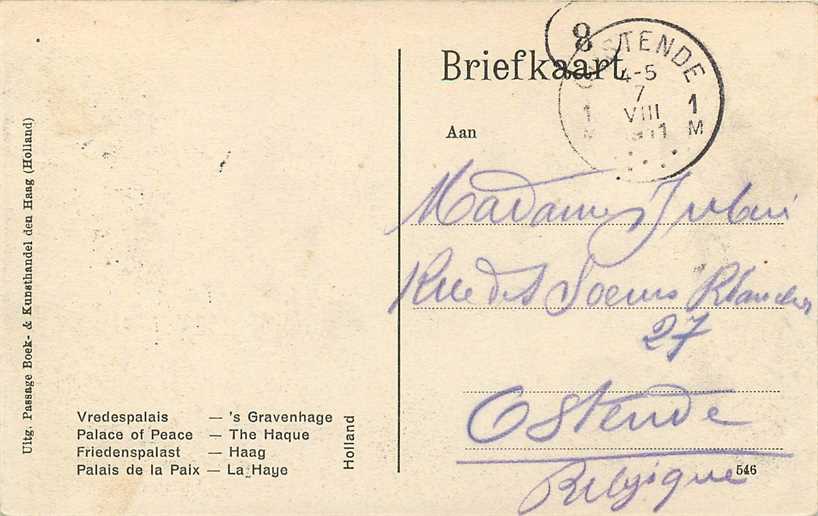 Uitg. Passage Boek- & Kunsthandel den Haag (Holland)
Vredespalais — 's Gravenhage
Palace of Peace — The Haque
Friedenspalast — Haag
Palais de la Paix — La Haye
Holland
Briefkaart
8
OOSTENDE
4-5
7
VIII
1 1
M M
Aan
Madame
Rue des Soeurs Blanches
27
Ostende
Belgique
546